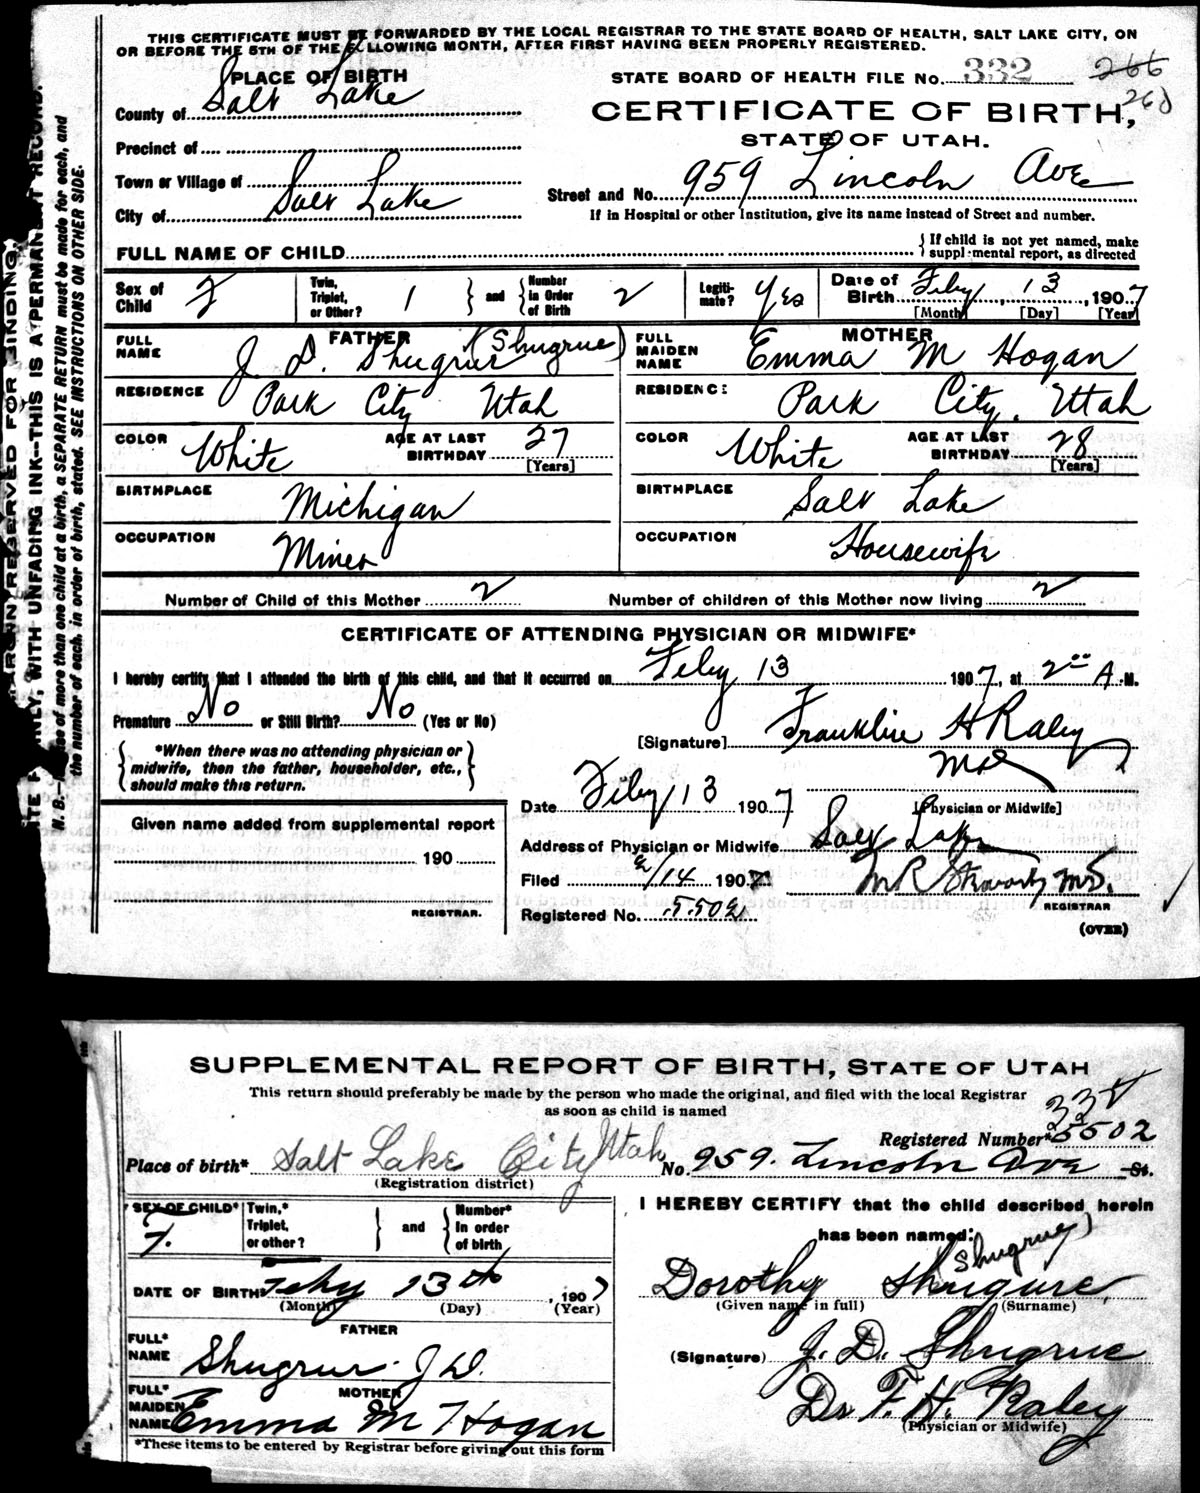 THIS CERTIFICATE MUST BE FORWARDED BY THE LOCAL REGISTRAR TO THE STATE BOARD OF HEALTH, SALT LAKE CITY, ON
OR BEFORE THE 5TH OF THE FOLLOWING MONTH, AFTER FIRST HAVING BEEN PROPERLY REGISTERED.
PLACE OF BIRTH
STATE BOARD OF HEALTH FILE No. 332 266
268
County of Salt Lake
CERTIFICATE OF BIRTH,
STATE OF UTAH.
Precinct of
Town or Village of
Street and No. 959 Lincoln Ave
City of Salt Lake
If in Hospital or other Institution, give its name instead of Street and number.
FULL NAME OF CHILD
If child is not yet named, make
supplemental report, as directed
Sex of Child F
Twin, Triplet, or Other? 1 and Number in Order of Birth 2
Legitimate? Yes
Date of Birth Feby 13, 1907
[Month] [Day] [Year]
FATHER
FULL NAME J. D. Shugrue (Shugrue)
MOTHER
FULL MAIDEN NAME Emma M Hogan
RESIDENCE Park City Utah
RESIDENCE Park City, Utah
COLOR White AGE AT LAST BIRTHDAY 27 [Years]
COLOR White AGE AT LAST BIRTHDAY 28 [Years]
BIRTHPLACE Michigan
BIRTHPLACE Salt Lake
OCCUPATION Miner
OCCUPATION Housewife
Number of Child of this Mother 2 Number of children of this Mother now living 2
CERTIFICATE OF ATTENDING PHYSICIAN OR MIDWIFE*
I hereby certify that I attended the birth of this child, and that it occurred on Feby 13 1907, at 2 00 A.M.
Premature No or Still Birth? No (Yes or No)
[Signature] Franklin H Raley
MD
*When there was no attending physician or
midwife, then the father, householder, etc.,
should make this return.
Date Feby 13 1907
[Physician or Midwife]
Given name added from supplemental report
190
REGISTRAR.
Address of Physician or Midwife Salt Lake
Filed 2/14 1907 M R Stewart MD.
REGISTRAR
Registered No. 5502
(OVER)
MARGIN RESERVED FOR BINDING.
WITH UNFADING INK--THIS IS A PERMANENT RECORD.
N. B.— of more than one child at a birth, a SEPARATE RETURN must be made for each, and
the number of each, in order of birth, stated. SEE INSTRUCTIONS ON OTHER SIDE.
SUPPLEMENTAL REPORT OF BIRTH, STATE OF UTAH
This return should preferably be made by the person who made the original, and filed with the local Registrar
as soon as child is named
332
Registered Number* 5502
Place of birth* Salt Lake City Utah No. 959. Lincoln Ave St.
(Registration district)
SEX OF CHILD* F.
Twin,* Triplet, or other? and Number* In order of birth
DATE OF BIRTH* Feby 13th, 1907
(Month) (Day) (Year)
FATHER
FULL* NAME Shugrue J D.
MOTHER
FULL* MAIDEN NAME Emma M Hogan
*These items to be entered by Registrar before giving out this form
I HEREBY CERTIFY that the child described herein
has been named:
(Shugrue)
Dorothy Shugure,
(Given name in full) (Surname)
(Signature) J. D. Shugrue
Dr F. H. Raley
(Physician or Midwife)